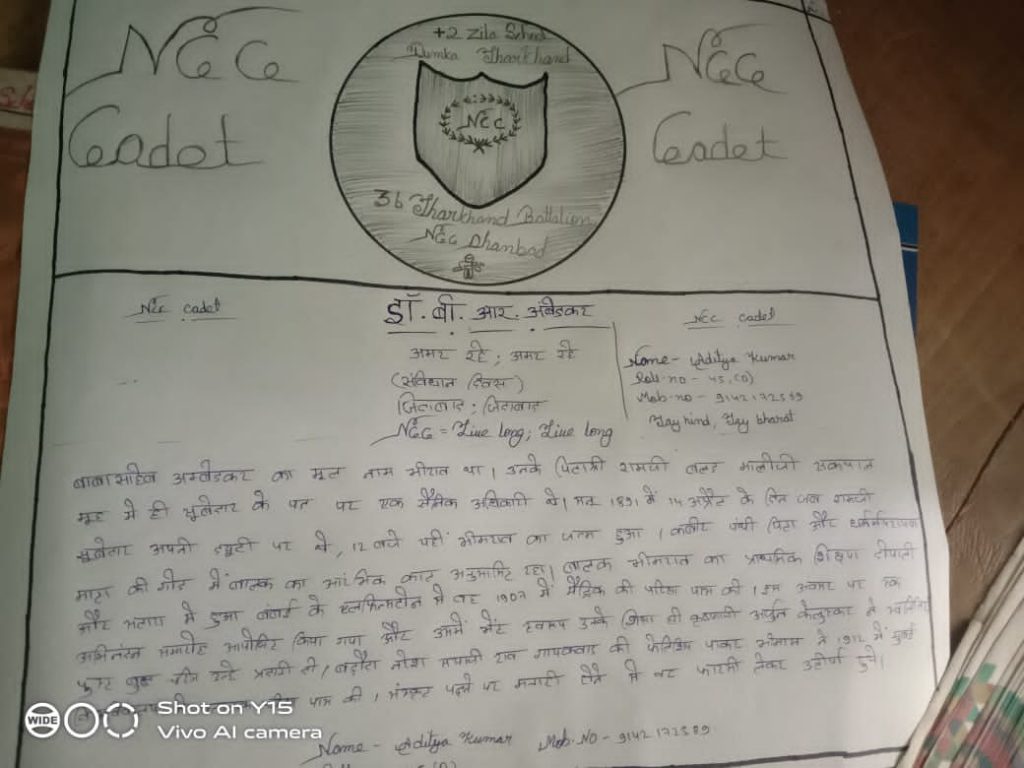 NCC
Cadet
+2 Zila School
Dumka Jharkhand
NCC
36 Jharkhand Battalion
NCC Dhanbad
NCC
Cadet
NCC cadet
डॉ. बी. आर. अंबेडकर
अमर रहे; अमर रहे
(संविधान दिवस)
जिंदाबाद; जिंदाबाद
NCC = Live long; Live long
NCC cadet
Name - Aditya Kumar
Roll-no - 45, (D)
Mob-no - 9142172589
Jay hind, Jay bharat
बाबासाहेब अम्बेडकर का मूल नाम भीमराव था। उनके पिताश्री रामजी वल्द मालोजी सकपाल
महू में ही सूबेदार के पद पर एक सैनिक अधिकारी थे। सन् 1891 के 14 अप्रैल के दिन जब रामजी
सूबेदार अपनी ड्यूटी पर थे, 12 बजे यहीं भीमराव का जन्म हुआ। कबीर पंथी पिता और
माता की गोद में बालक का आरंभिक काल रहा। बालक भीमराव का प्राथमिक शिक्षण दापोली
और सतारा में हुआ बंबई के एलफिन्स्टोन से वह 1907 में मैट्रिक की परीक्षा पास की। इस अवसर पर एक
अभिनंदन समारोह आयोजित किया गया और उसमें भेंट स्वरूप उनके शिक्षक श्री कृष्णाजी अर्जुन केलुस्कर ने
बुद्ध उन्हें प्रदान की। बड़ौदा नरेश सयाजी राव गायकवाड की फेलोशिप पाकर भीमराव ने 1912 में मुबई
पास की। संस्कृत पढने पर मनाही होने से वह फारसी लेकर उत्तीर्ण हुये।
Name - Aditya Kumar Mob. No - 9142172589
WIDE
Shot on Y15
Vivo AI camera